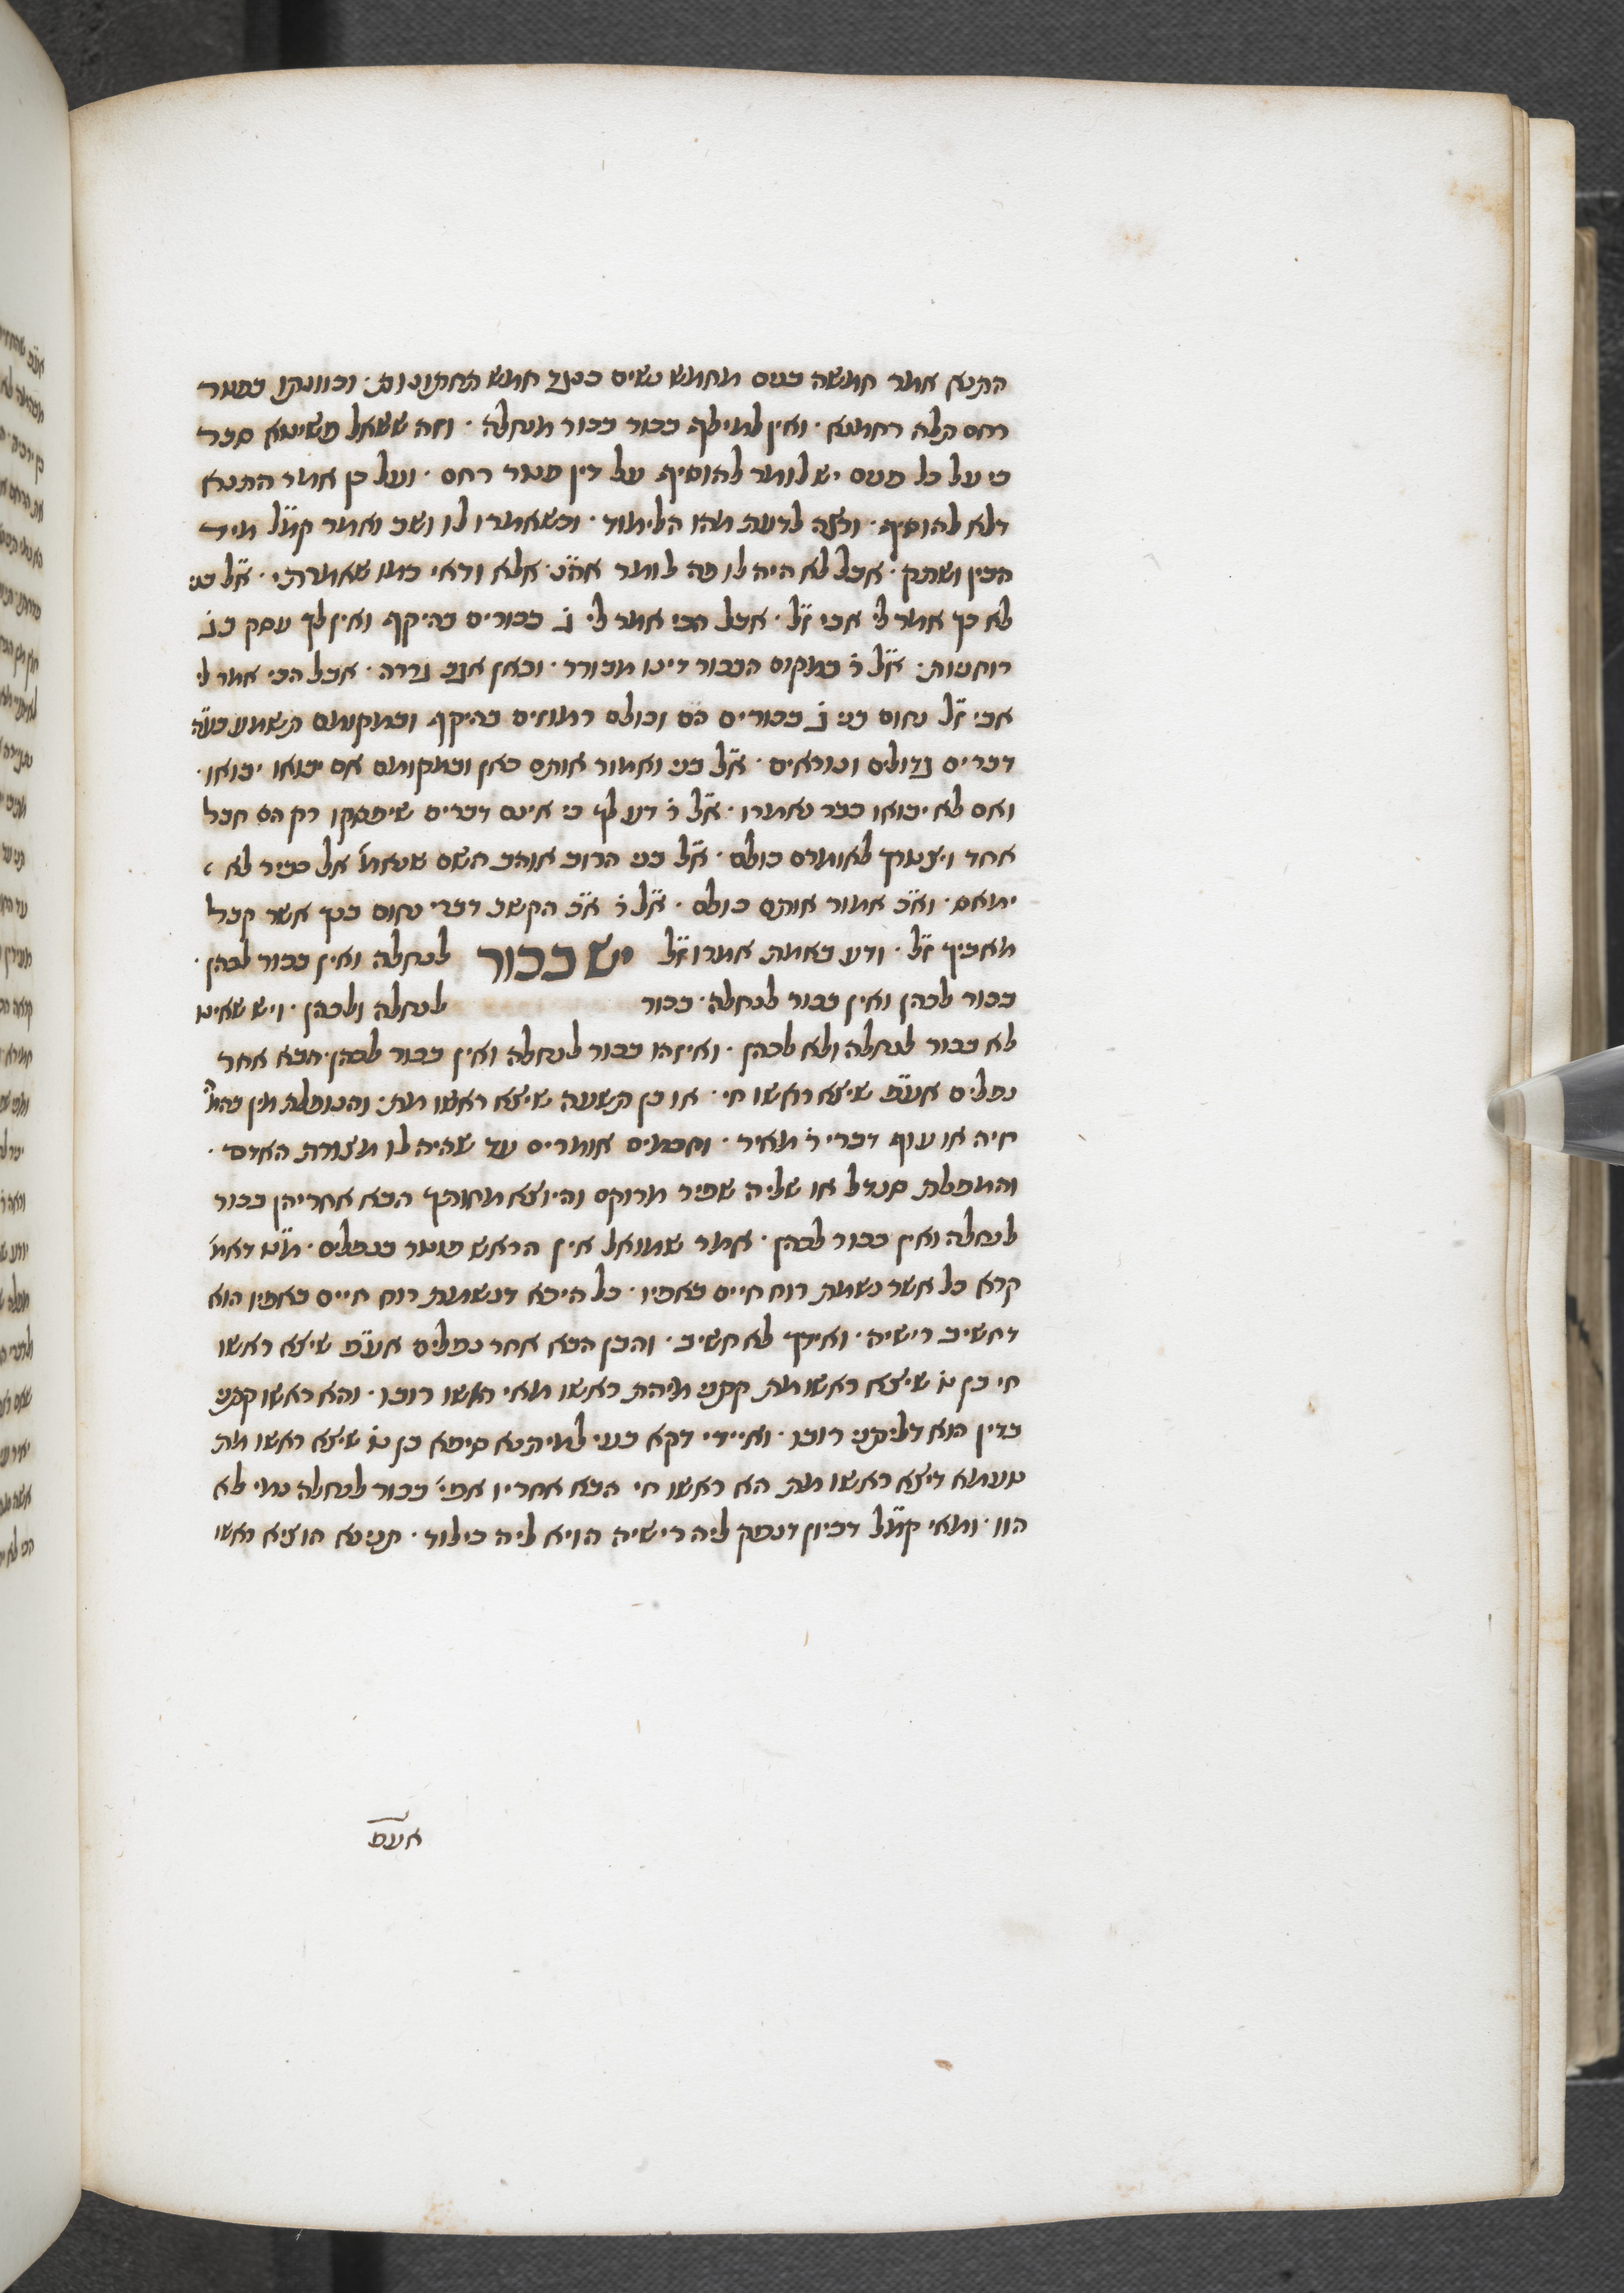 התנא אמר חמשה בנים מחמש נשים כנגד חמש התחתונות· וכוונתו בפטר
רחם תלה רחמנא· ואין למילף בכור בכור מנחלה· וזה ששאל סבר
כי על כל פנים יש לומר להוסיף על דין פטר רחם· ועל כן אמר התנא
דלא להוסיף· ורצה לדעת מהו הלימוד· וכשאמרו לו ושב ואמר קמ״ל מיד
הבין ושתק· אבל לא היה לו פה לומר אלא ודאי כמו שאמרתי· א״ל בני
לא כך אמר לי אבי ז״ל· אבל הכי אמר לי נ׳ בכורים בהיקף ואין לך עסק בנ׳
רוחניות· א״ל ר׳ במקום הבכור דינו מבורר· וכאן אגב גררה· אבל הכי אמר לי
אבי ז״ל נחום בני נ׳ בכורים הם וכולם רמוזים בהיקף ובמקומם תשמע בע״ה
דברים גדולים ונוראים· א״ל בני ואמור אותם כאן ובמקומם אם יבואו יבואו·
ואם לא יבואו כבר נאמרו· א״ל ר׳ דע לך כי אינם דברים שיפסקו רק הם חבל
אחד ויצטרך לאומרם כולם· א״ל בני הרוב אוהב השם שנאמ׳ אל כביר לא
ימאס· וא״כ אמור אותם כולם· א״ל ר׳ א״כ הקשב דברי נחום בנך אשר קבל
מאביך ז״ל· ודע באמת אמרו ז״ל יש בכור לנחלה ואין בכור לכהן·
בכור לכהן ואין בכור לנחלה· בכור לנחלה ולכהן· ויש שאינו
לא בכור לנחלה ולא לכהן· ואיזהו בכור לנחלה ואין בכור לכהן· הבא אחר
נפלים אע״פ שיצא ראשו חי· או בן תשעה שיצא ראשו מת· והמפלת מין בהמ׳
חיה או עוף דברי ר׳ מאיר· וחכמים אומרים עד שהיה לו מצורת האדם·
והמפלת סנדל או שליה שפיר מרוקם והיוצא מחותך הבא אחריהן בכור
לנחלה ואין בכור לכהן· אמר שמואל אין הראש פוטר בנפלים· מ״ט דאמ׳
קרא כל אשר נשמת רוח חיים באפיו· כל היכא דנשמת רוח חיים באפיו הוא
דחשיב רישיה· ואידך לא חשיב· והכן הבא אחר נפלים אע״פ שיצא ראשו
חי בן ט׳ שיצא ראשו מת קתני מיהת ראשו מאי ראשו רובו· והא ראשו קתני
בדין הוא דליתני רובו· ואיידי דקא בעי למיתנא סיפא בן ט׳ שיצא ראשו מת
טעמא דיצא ראשו מת הא ראשו חי הבא אחריו אפי׳ בכור לנחלה נמי לא
הוו· ומאי קמ״ל דכיון דנפק ליה רישיה הויא ליה כילוד· תנינא הוציא ראשו
אע״פ